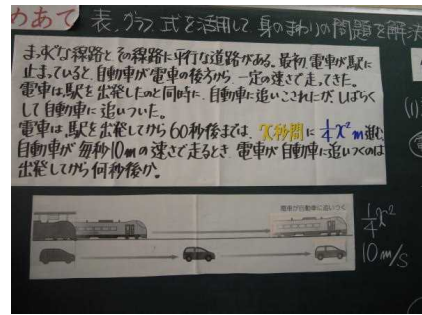 めあて 表、グラフ、式を活用して身のまわりの問題を解決
まっすぐな線路とその線路に平行な道路がある。最初、電車が駅に
止まっていると、自動車が電車の後方から、一定の速さで走ってきた。
電車は、駅を出発したのと同時に、自動車に追いこされたが、しばらく
して自動車に追いついた。
電車は、駅を出発してから60秒後までは、x秒間に1/4x²m進む。
自動車が毎秒10mの速さで走るとき、電車が自動車に追いつくのは
出発してから何秒後か。
電車が自動車に追いつく
1/4x²
10m/s
(1)